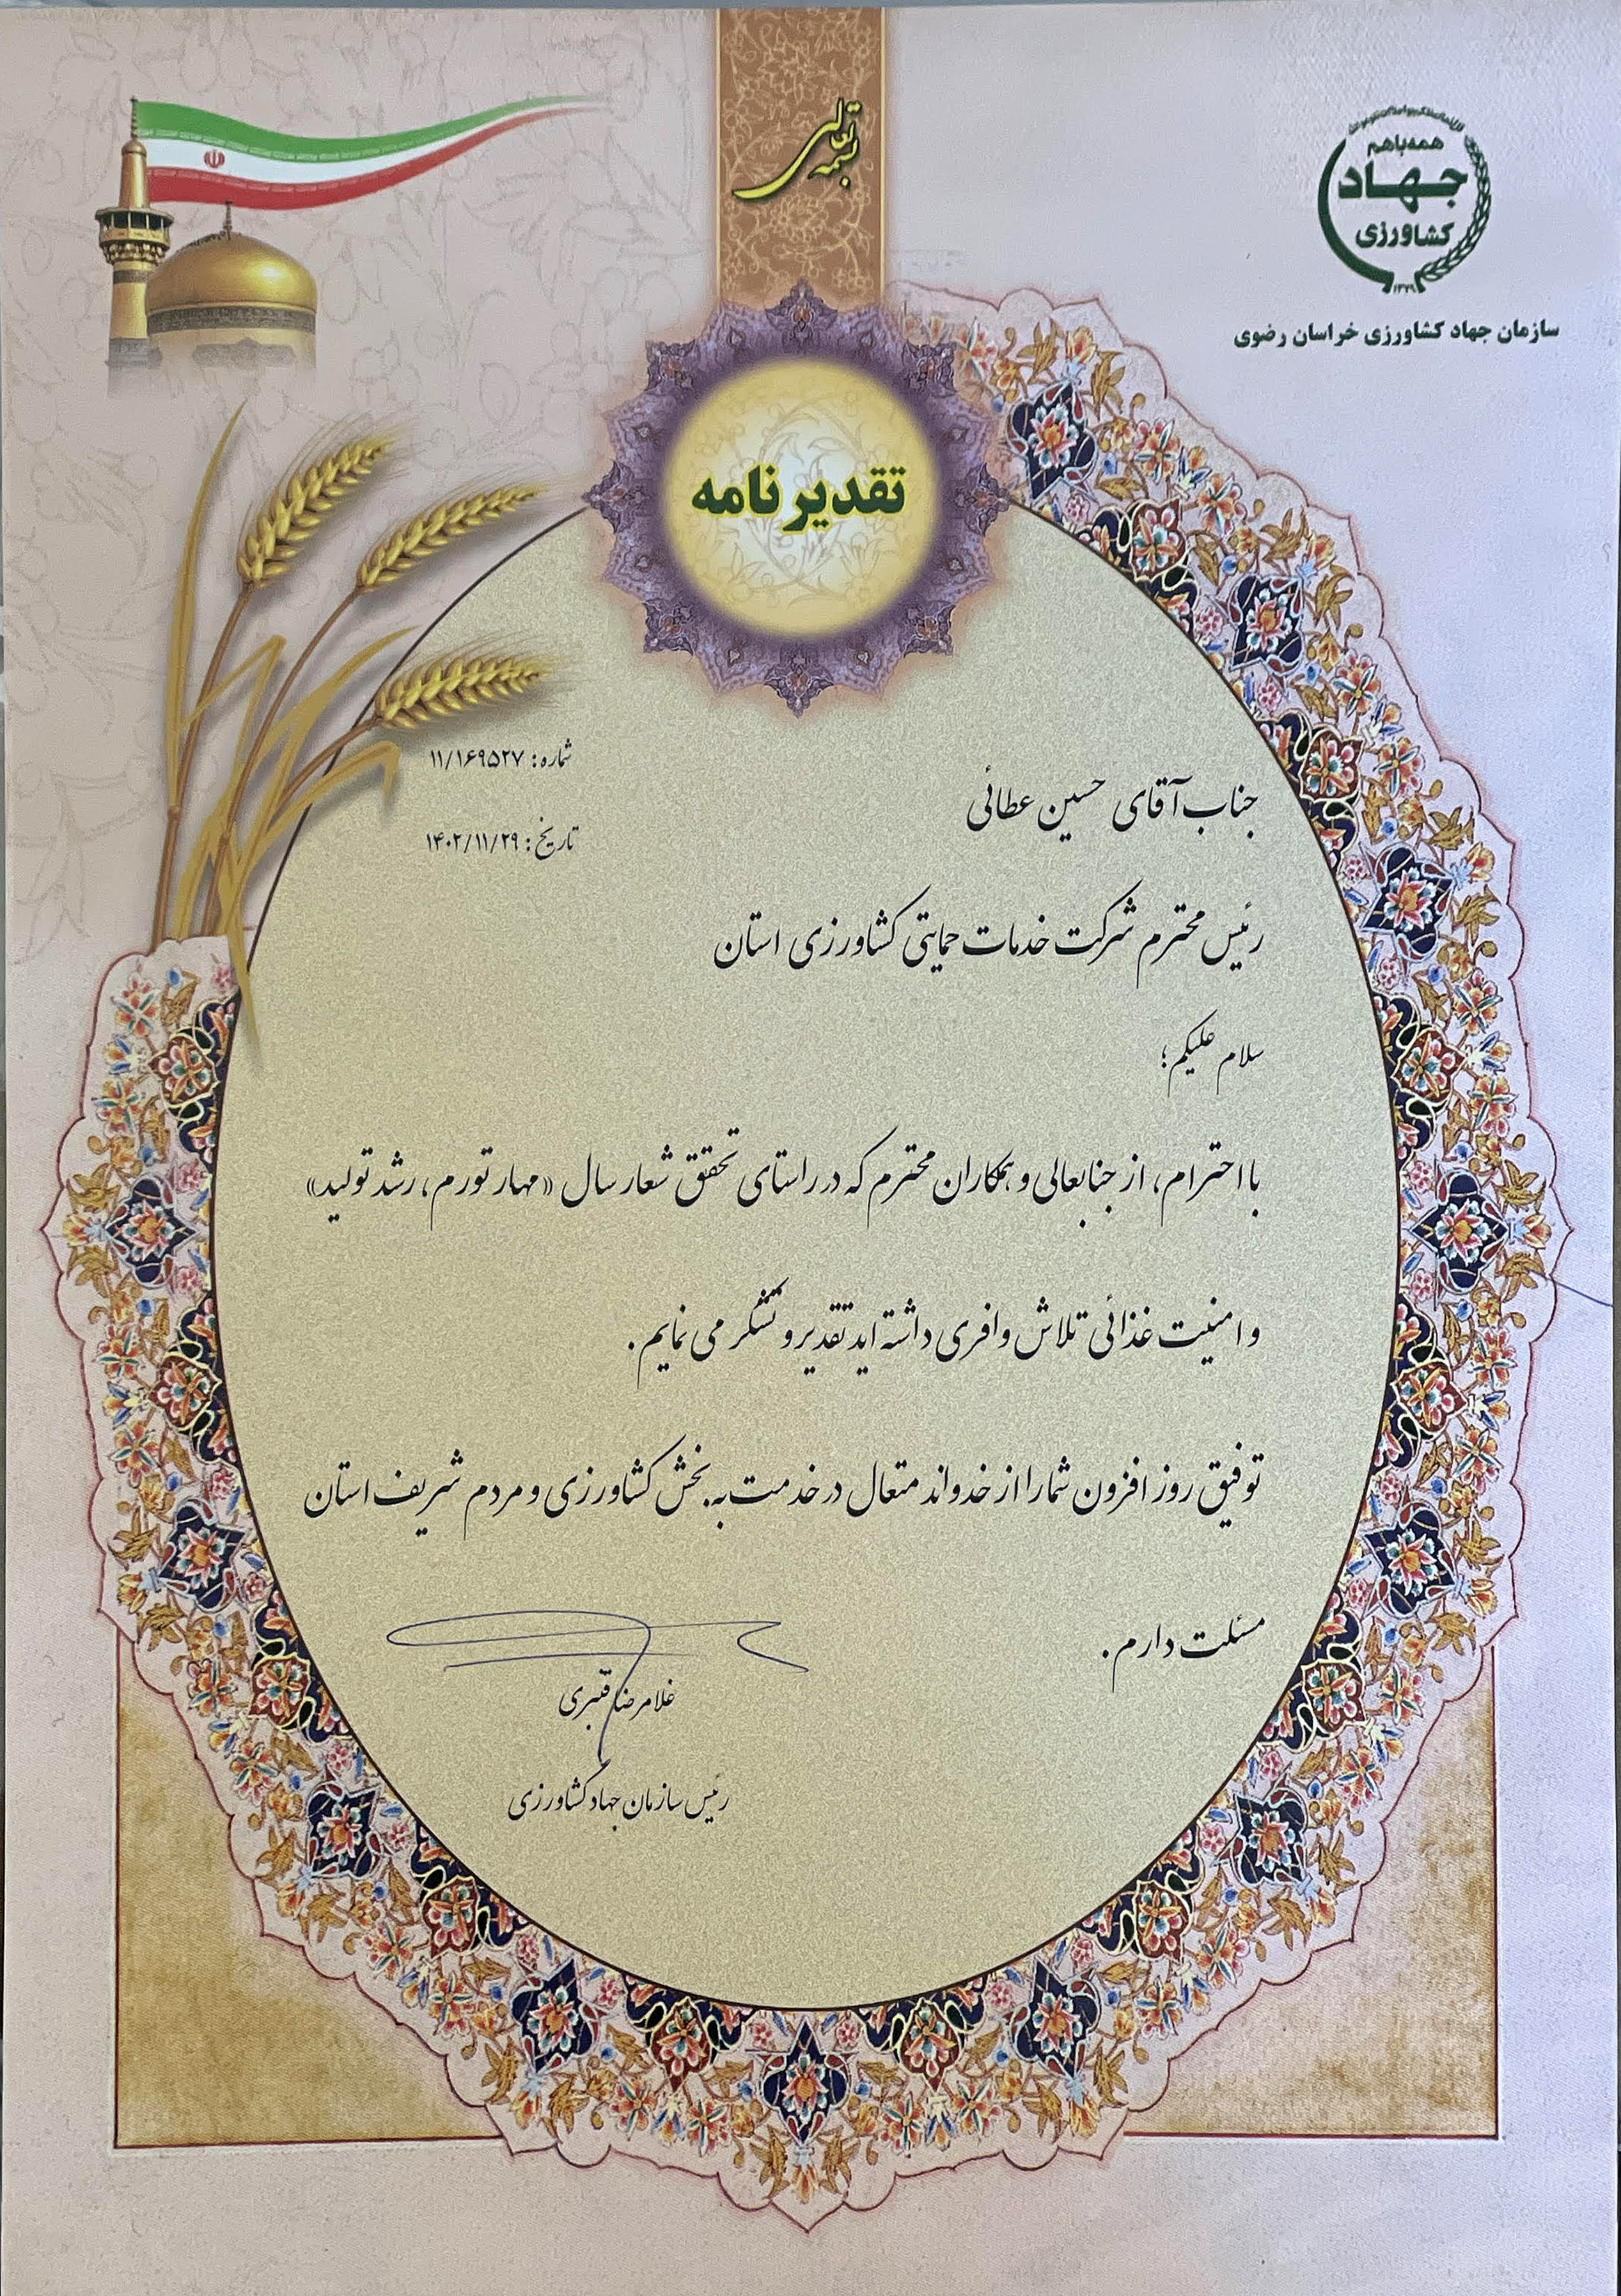 بسمه تعالی
همه با هم
جهاد
کشاورزی
۱۳۷۹
سازمان جهاد کشاورزی خراسان رضوی
تقدیرنامه
شماره: ۱۱/۱۶۹۵۲۷
تاریخ: ۱۴۰۲/۱۱/۲۹
جناب آقای حسین عطائی
رئیس محترم شرکت خدمات حمایتی کشاورزی استان
سلام علیکم؛
با احترام، از جنابعالی و همکاران محترم که در راستای تحقق شعار سال «مهار تورم، رشد تولید»
و امنیت غذائی تلاش وافری داشته اید تقدیر و تشکر می نمایم.
توفیق روز افزون شما را از خدواند متعال در خدمت به بخش کشاورزی و مردم شریف استان
مسئلت دارم.
غلامرضا قنبری
رئیس سازمان جهاد کشاورزی